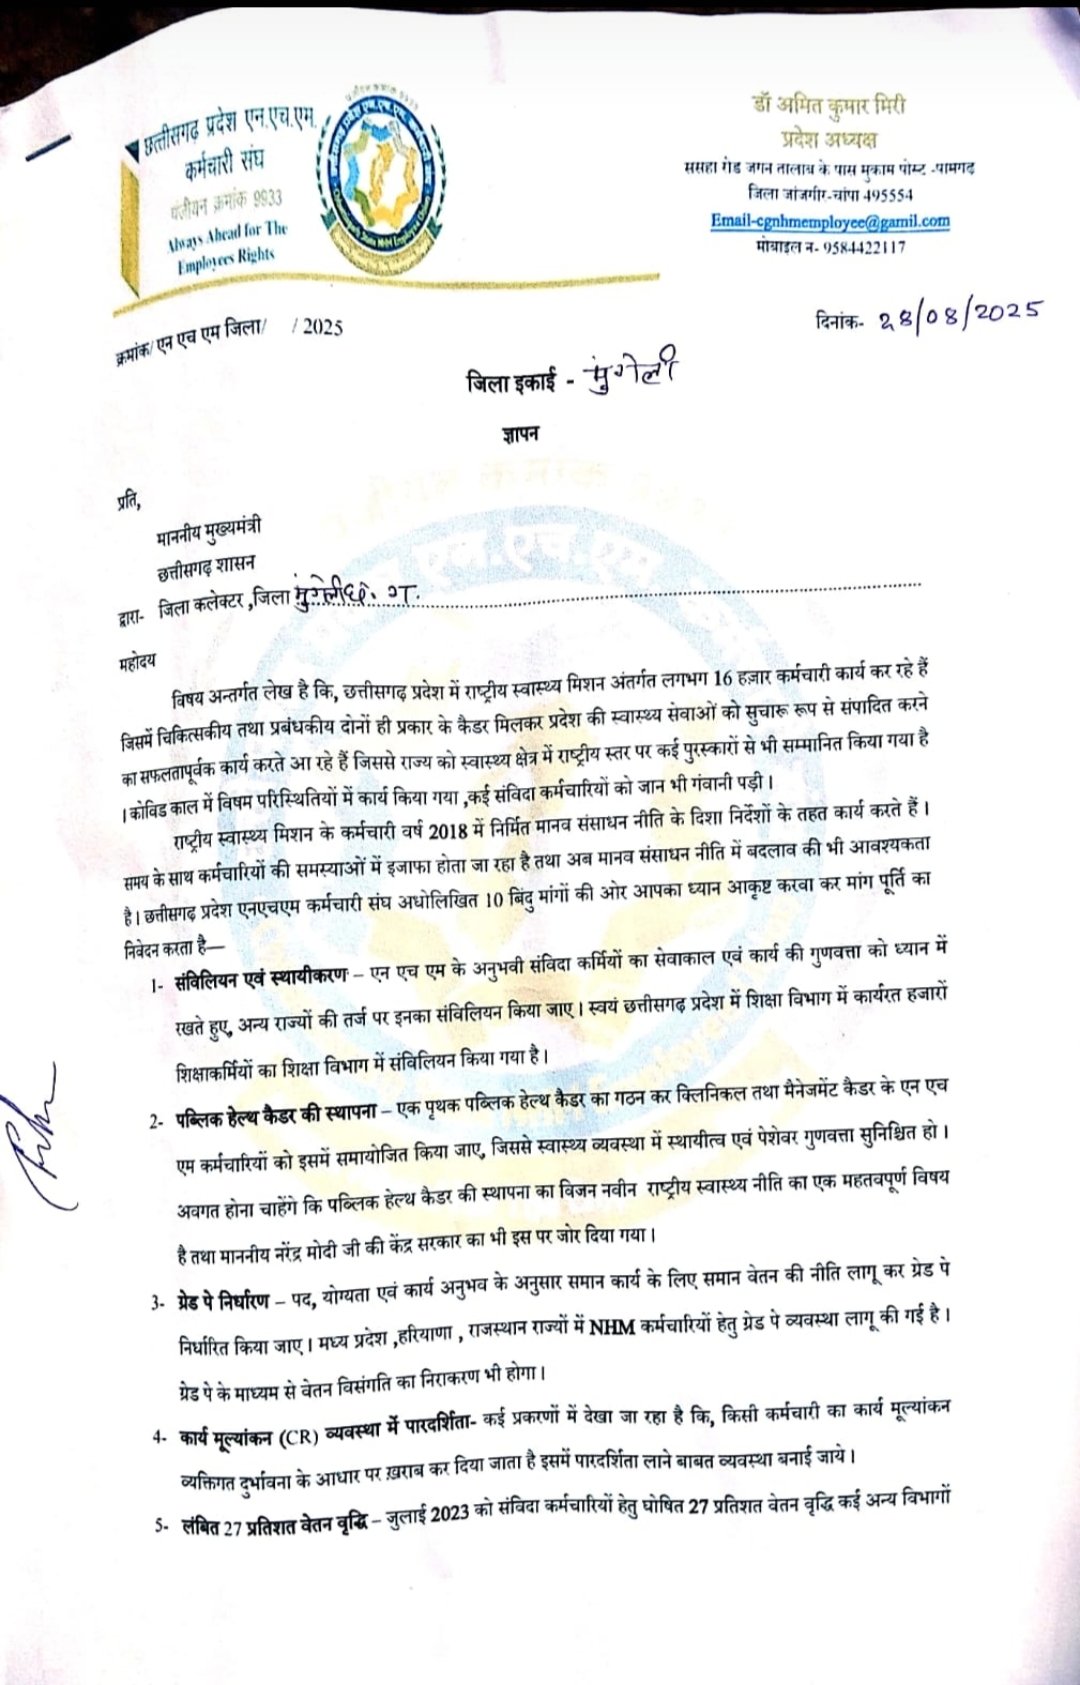 छत्तीसगढ़ प्रदेश एन.एच.एम.
कर्मचारी संघ
पंजीयन क्रमांक 9933
Always Ahead for The
Employees Rights
डॉ अमित कुमार मिरी
प्रदेश अध्यक्ष
ससहा रोड जगन तालाब के पास मुकाम पोस्ट -पामगढ़
जिला जांजगीर-चांपा 495554
Email-cgnhmemployee@gamil.com
मोबाइल न- 9584422117
क्रमांक/ एन एच एम जिला/ / 2025
दिनांक- 28/08/2025
जिला इकाई - मुंगेली
ज्ञापन
प्रति,
माननीय मुख्यमंत्री
छत्तीसगढ़ शासन
द्वारा- जिला कलेक्टर ,जिला मुंगेली छ. ग.
महोदय
विषय अन्तर्गत लेख है कि, छत्तीसगढ़ प्रदेश में राष्ट्रीय स्वास्थ्य मिशन अंतर्गत लगभग 16 हज़ार कर्मचारी कार्य कर रहे हैं
जिसमें चिकित्सकीय तथा प्रबंधकीय दोनों ही प्रकार के कैडर मिलकर प्रदेश की स्वास्थ्य सेवाओं को सुचारू रूप से संपादित करने
का सफलतापूर्वक कार्य करते आ रहे हैं जिससे राज्य को स्वास्थ्य क्षेत्र में राष्ट्रीय स्तर पर कई पुरस्कारों से भी सम्मानित किया गया है
। कोविड काल में विषम परिस्थितियों में कार्य किया गया ,कई संविदा कर्मचारियों को जान भी गंवानी पड़ी ।
राष्ट्रीय स्वास्थ्य मिशन के कर्मचारी वर्ष 2018 में निर्मित मानव संसाधन नीति के दिशा निर्देशों के तहत कार्य करते हैं ।
समय के साथ कर्मचारियों की समस्याओं में इजाफा होता जा रहा है तथा अब मानव संसाधन नीति में बदलाव की भी आवश्यकता
है । छत्तीसगढ़ प्रदेश एनएचएम कर्मचारी संघ अधोलिखित 10 बिंदु मांगों की ओर आपका ध्यान आकृष्ट करवा कर मांग पूर्ति का
निवेदन करता है—
1- संविलियन एवं स्थायीकरण – एन एच एम के अनुभवी संविदा कर्मियों का सेवाकाल एवं कार्य की गुणवत्ता को ध्यान में
रखते हुए, अन्य राज्यों की तर्ज पर इनका संविलियन किया जाए । स्वयं छत्तीसगढ़ प्रदेश में शिक्षा विभाग में कार्यरत हजारों
शिक्षाकर्मियों का शिक्षा विभाग में संविलियन किया गया है ।
2- पब्लिक हेल्थ कैडर की स्थापना – एक पृथक पब्लिक हेल्थ कैडर का गठन कर क्लिनिकल तथा मैनेजमेंट कैडर के एन एच
एम कर्मचारियों को इसमें समायोजित किया जाए, जिससे स्वास्थ्य व्यवस्था में स्थायीत्व एवं पेशेवर गुणवत्ता सुनिश्चित हो ।
अवगत होना चाहेंगे कि पब्लिक हेल्थ कैडर की स्थापना का विजन नवीन राष्ट्रीय स्वास्थ्य नीति का एक महतवपूर्ण विषय
है तथा माननीय नरेंद्र मोदी जी की केंद्र सरकार का भी इस पर जोर दिया गया ।
3- ग्रेड पे निर्धारण – पद, योग्यता एवं कार्य अनुभव के अनुसार समान कार्य के लिए समान वेतन की नीति लागू कर ग्रेड पे
निर्धारित किया जाए । मध्य प्रदेश ,हरियाणा , राजस्थान राज्यों में NHM कर्मचारियों हेतु ग्रेड पे व्यवस्था लागू की गई है ।
ग्रेड पे के माध्यम से वेतन विसंगति का निराकरण भी होगा ।
4- कार्य मूल्यांकन (CR) व्यवस्था में पारदर्शिता- कई प्रकरणों में देखा जा रहा है कि, किसी कर्मचारी का कार्य मूल्यांकन
व्यक्तिगत दुर्भावना के आधार पर ख़राब कर दिया जाता है इसमें पारदर्शिता लाने बाबत व्यवस्था बनाई जाये ।
5- लंबित 27 प्रतिशत वेतन वृद्धि – जुलाई 2023 को संविदा कर्मचारियों हेतु घोषित 27 प्रतिशत वेतन वृद्धि कई अन्य विभागों